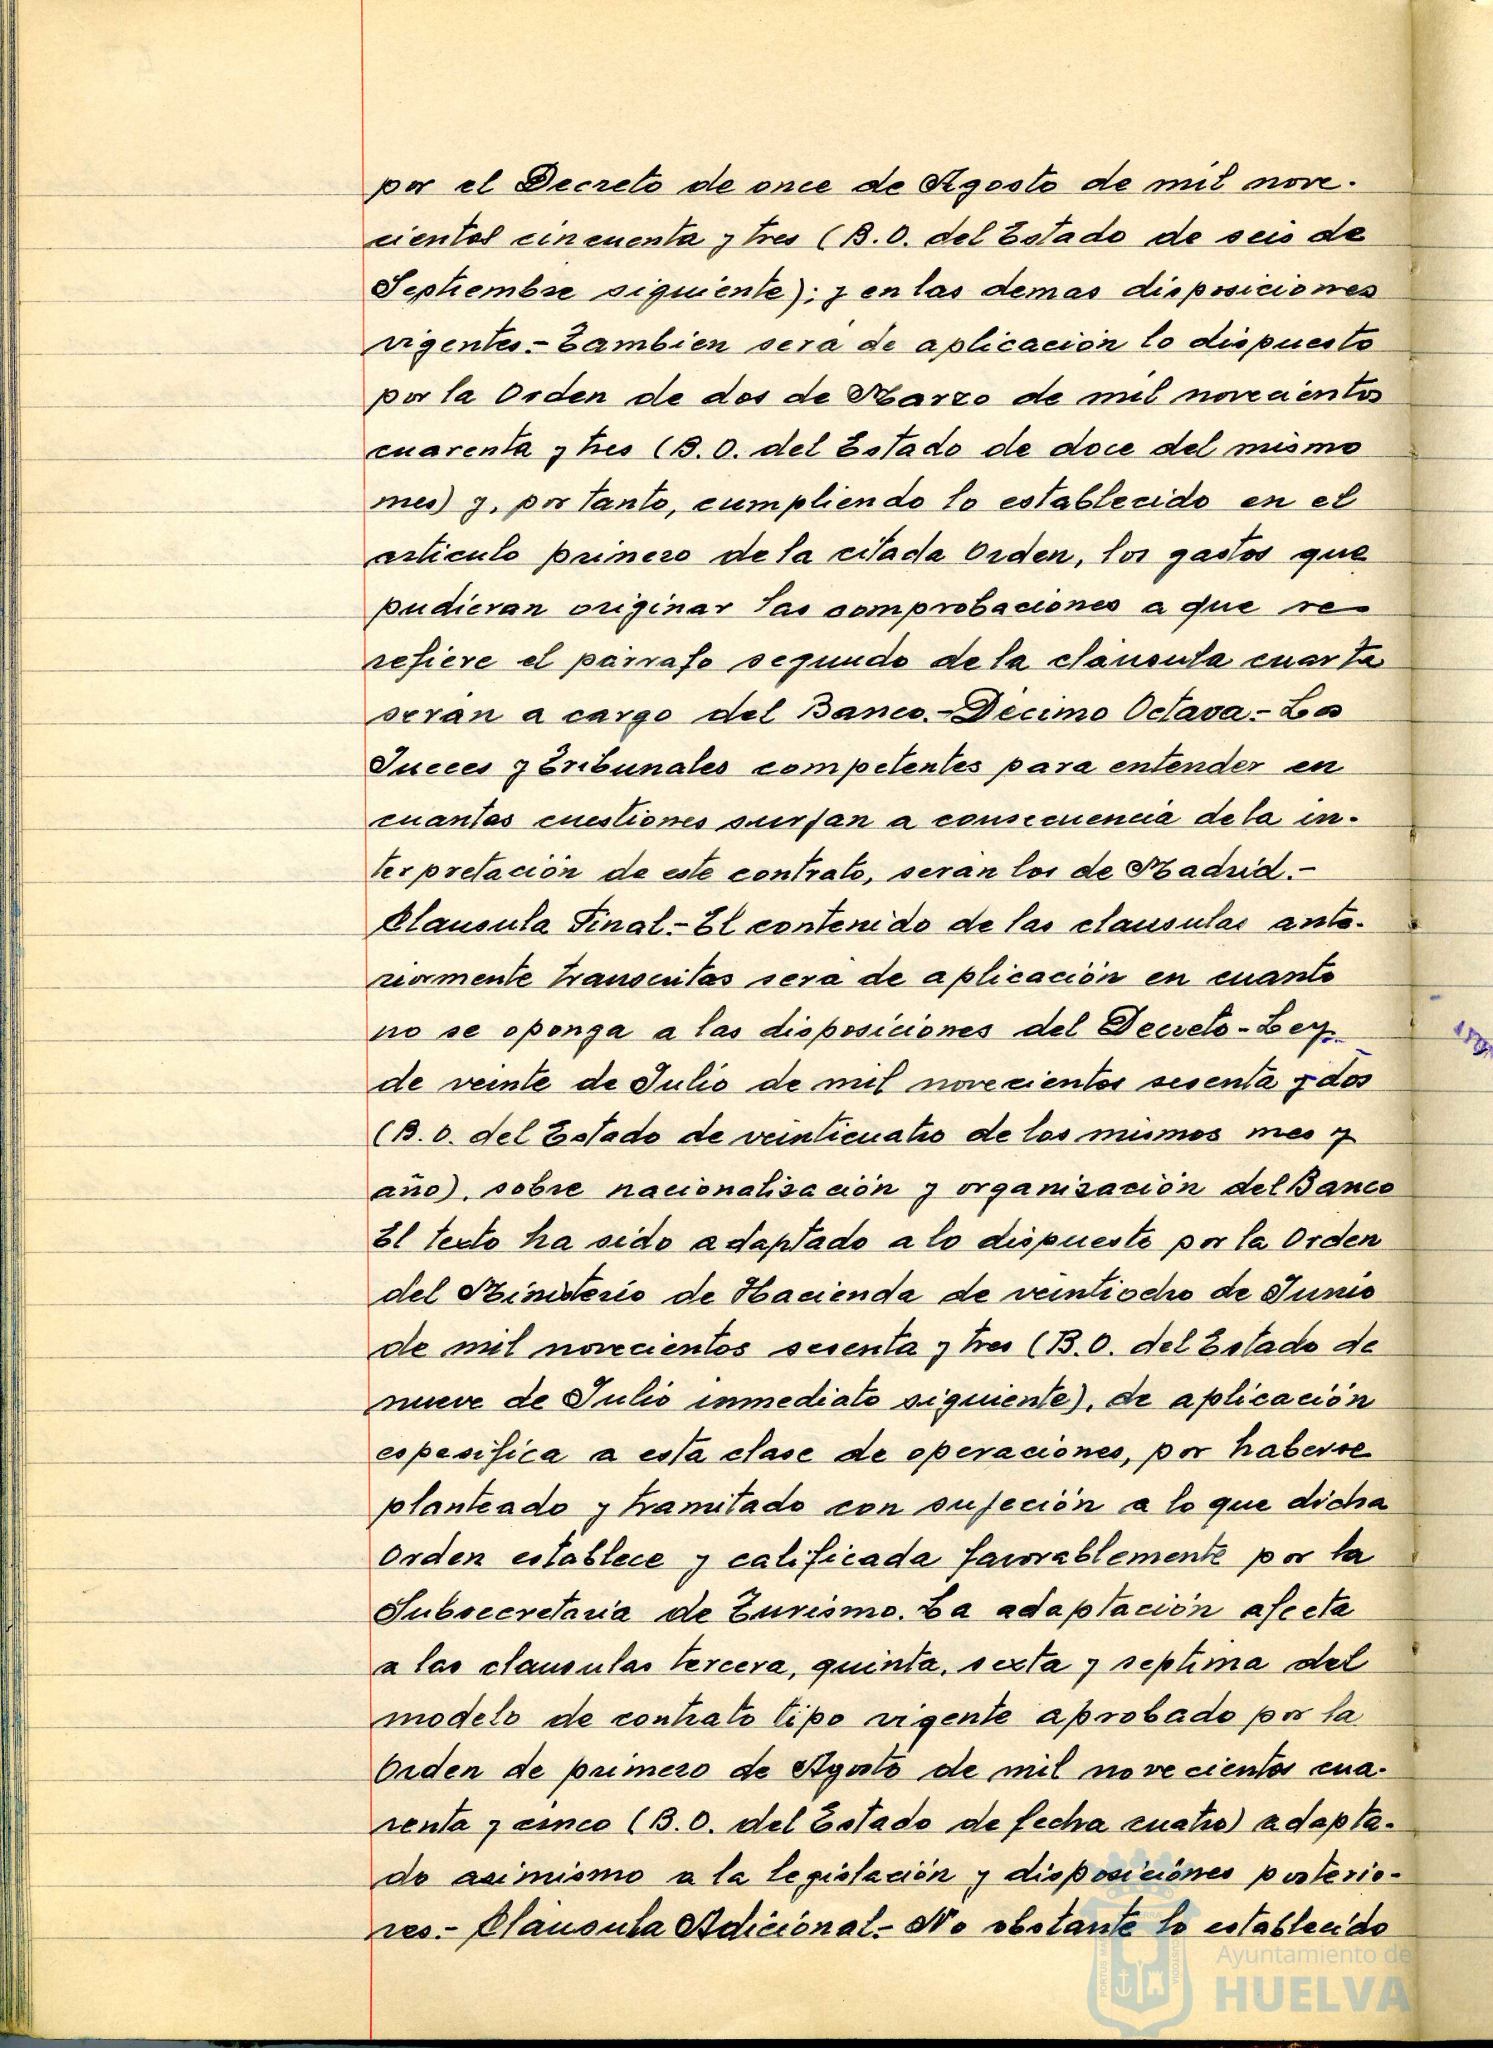 por el Decreto de once de Agosto de mil nove-
cientos cincuenta y tres (B.O. del Estado de seis de
Septiembre siguiente); y en las demas disposiciones
vigentes.- Tambien será de aplicación lo dispuesto
por la Orden de dos de Marzo de mil novecientos
cuarenta y tres (B.O. del Estado de doce del mismo
mes) y, por tanto, cumpliendo lo establecido en el
articulo primero de la citada Orden, los gastos que
pudieran originar las comprobaciones a que se
refiere el párrafo segundo de la cláusula cuarta
serán a cargo del Banco.- Décimo Octava.- Los
Jueces y Tribunales competentes para entender en
cuantas cuestiones surjan a consecuencia de la in-
terpretación de este contrato, serán los de Madrid.-
Clausula Final.- El contenido de las clausulas ante-
riormente transcritas será de aplicación en cuanto
no se oponga a las disposiciones del Decreto-Ley
de veinte de Julio de mil novecientos sesenta y dos
(B.O. del Estado de veinticuatro de los mismos mes y
año), sobre nacionalisación y organisación del Banco
El texto ha sido adaptado a lo dispuesto por la Orden
del Ministerio de Hacienda de veintiocho de Junio
de mil novecientos sesenta y tres (B.O. del Estado de
nueve de Julio inmediato siguiente), de aplicación
espesifica a esta clase de operaciones, por haberse
planteado y tramitado con sujeción a lo que dicha
Orden establece y calificada favorablemente por la
Subsecretaria de Turismo. La adaptación afecta
a las clausulas tercera, quinta, sexta y septima del
modelo de contrato tipo vigente aprobado por la
Orden de primero de Agosto de mil novecientos cua-
renta y cinco (B.O. del Estado de fecha cuatro) adapta-
do asimismo a la legislación y disposiciónes posterio-
res.- Cláusula Adicional.- No obstante lo establecido
Ayuntamiento de
HUELVA